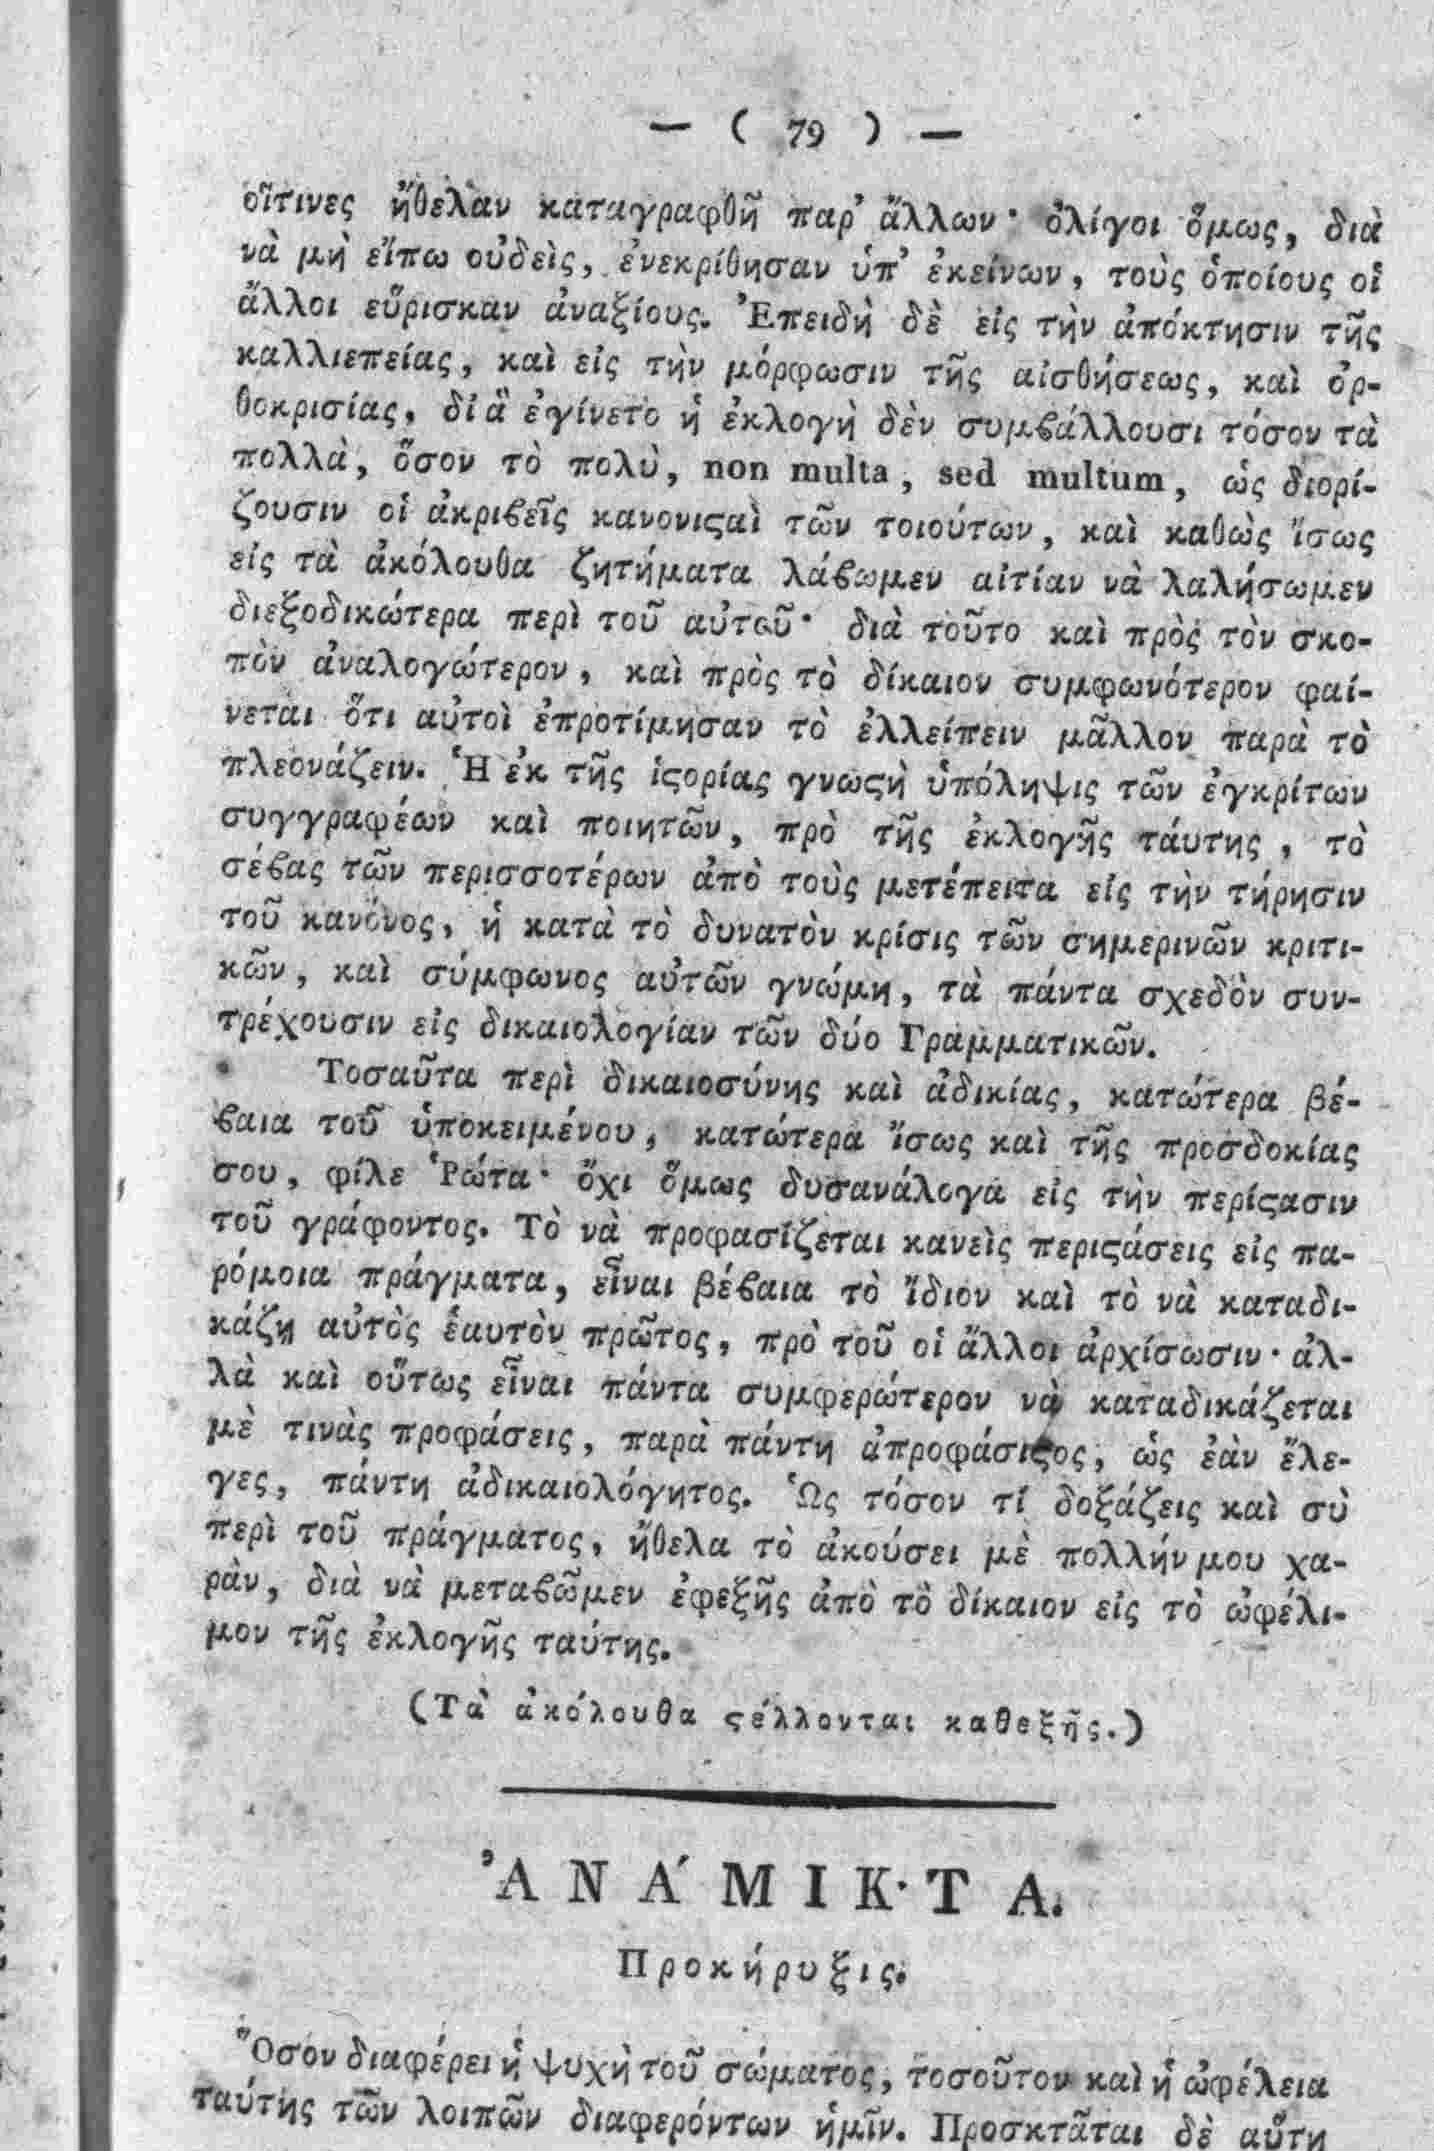 — ( 79 ) —
οἵτινες ἤθελαν καταγραφθῆ παρ' ἄλλων· ὀλίγοι ὅμως, διὰ
νὰ μὴ εἴπω οὐδεὶς, ἐνεκρίθησαν ὑπ' ἐκείνων, τοὺς ὁποίους οἱ
ἄλλοι εὕρισκαν ἀναξίους. Ἐπειδὴ δὲ εἰς τὴν ἀπόκτησιν τῆς
καλλιεπείας, καὶ εἰς τὴν μόρφωσιν τῆς αἰσθήσεως, καὶ ὀρ-
θοκρισίας, δι ἃ ἐγίνετο ἡ ἐκλογὴ δὲν συμϐάλλουσι τόσον τὰ
πολλὰ, ὅσον τὸ πολὺ, non multa, sed multum, ὡς διορί-
ζουσιν οἱ ἀκριϐεῖς κανονιϛαὶ τῶν τοιούτων, καὶ καθὼς ἴσως
εἰς τὰ ἀκόλουθα ζητήματα λάϐωμεν αἰτίαν νὰ λαλήσωμεν
διεξοδικώτερα περὶ τοῦ αὐτοῦ· διὰ τοῦτο καὶ πρὸς τὸν σκο-
πὸν ἀναλογώτερον, καὶ πρὸς τὸ δίκαιον συμφωνότερον φαί-
νεται ὅτι αὐτοὶ ἐπροτίμησαν τὸ ἐλλείπειν μᾶλλον παρὰ τὸ
πλεονάζειν. Ἡ ἐκ τῆς ἱϛορίας γνωϛὴ ὑπόληψις τῶν ἐγκρίτων
συγγραφέων καὶ ποιητῶν, πρὸ τῆς ἐκλογῆς ταύτης, τὸ
σέϐας τῶν περισσοτέρων ἀπὸ τοὺς μετέπειτα εἰς τὴν τήρησιν
τοῦ κανόνος, ἡ κατὰ τὸ δυνατὸν κρίσις τῶν σημερινῶν κριτι-
κῶν, καὶ σύμφωνος αὐτῶν γνώμη, τὰ πάντα σχεδὸν συν-
τρέχουσιν εἰς δικαιολογίαν τῶν δύο Γραμματικῶν.
Τοσαῦτα περὶ δικαιοσύνης καὶ ἀδικίας, κατώτερα βέ-
ϐαια τοῦ ὑποκειμένου, κατώτερα ἴσως καὶ τῆς προσδοκίας
σου, φίλε Ῥώτα· ὄχι ὅμως δυσανάλογα εἰς τὴν περίϛασιν
τοῦ γράφοντος. Τὸ νὰ προφασίζεται κανεὶς περιϛάσεις εἰς πα-
ρόμοια πράγματα, εἶναι βέϐαια τὸ ἴδιον καὶ τὸ νὰ καταδι-
κάζη αὐτὸς ἑαυτὸν πρῶτος, πρὸ τοῦ οἱ ἄλλοι ἀρχίσωσιν· ἀλ-
λὰ καὶ οὕτως εἶναι πάντα συμφερώτερον νὰ καταδικάζεται
μὲ τινὰς προφάσεις, παρὰ πάντη ἀπροφάσιϛος, ὡς ἐὰν ἔλε-
γες, πάντη ἀδικαιολόγητος. Ὡς τόσον τί δοξάζεις καὶ σὺ
περὶ τοῦ πράγματος, ἤθελα τὸ ἀκούσει μὲ πολλήν μου χα-
ρὰν, διὰ νὰ μεταϐῶμεν ἐφεξῆς ἀπὸ τὸ δίκαιον εἰς τὸ ὠφέλι-
μον τῆς ἐκλογῆς ταύτης.
(Τὰ ἀκόλουθα ϛέλλονται καθεξῆς.)
ἈΝΆΜΙΚΤΑ.
Προκήρυξις.
Ὅσον διαφέρει ἡ ψυχὴ τοῦ σώματος, τοσοῦτον καὶ ἡ ὠφέλεια
ταύτης τῶν λοιπῶν διαφερόντων ἡμῖν. Προσκτᾶται δὲ αὕτη